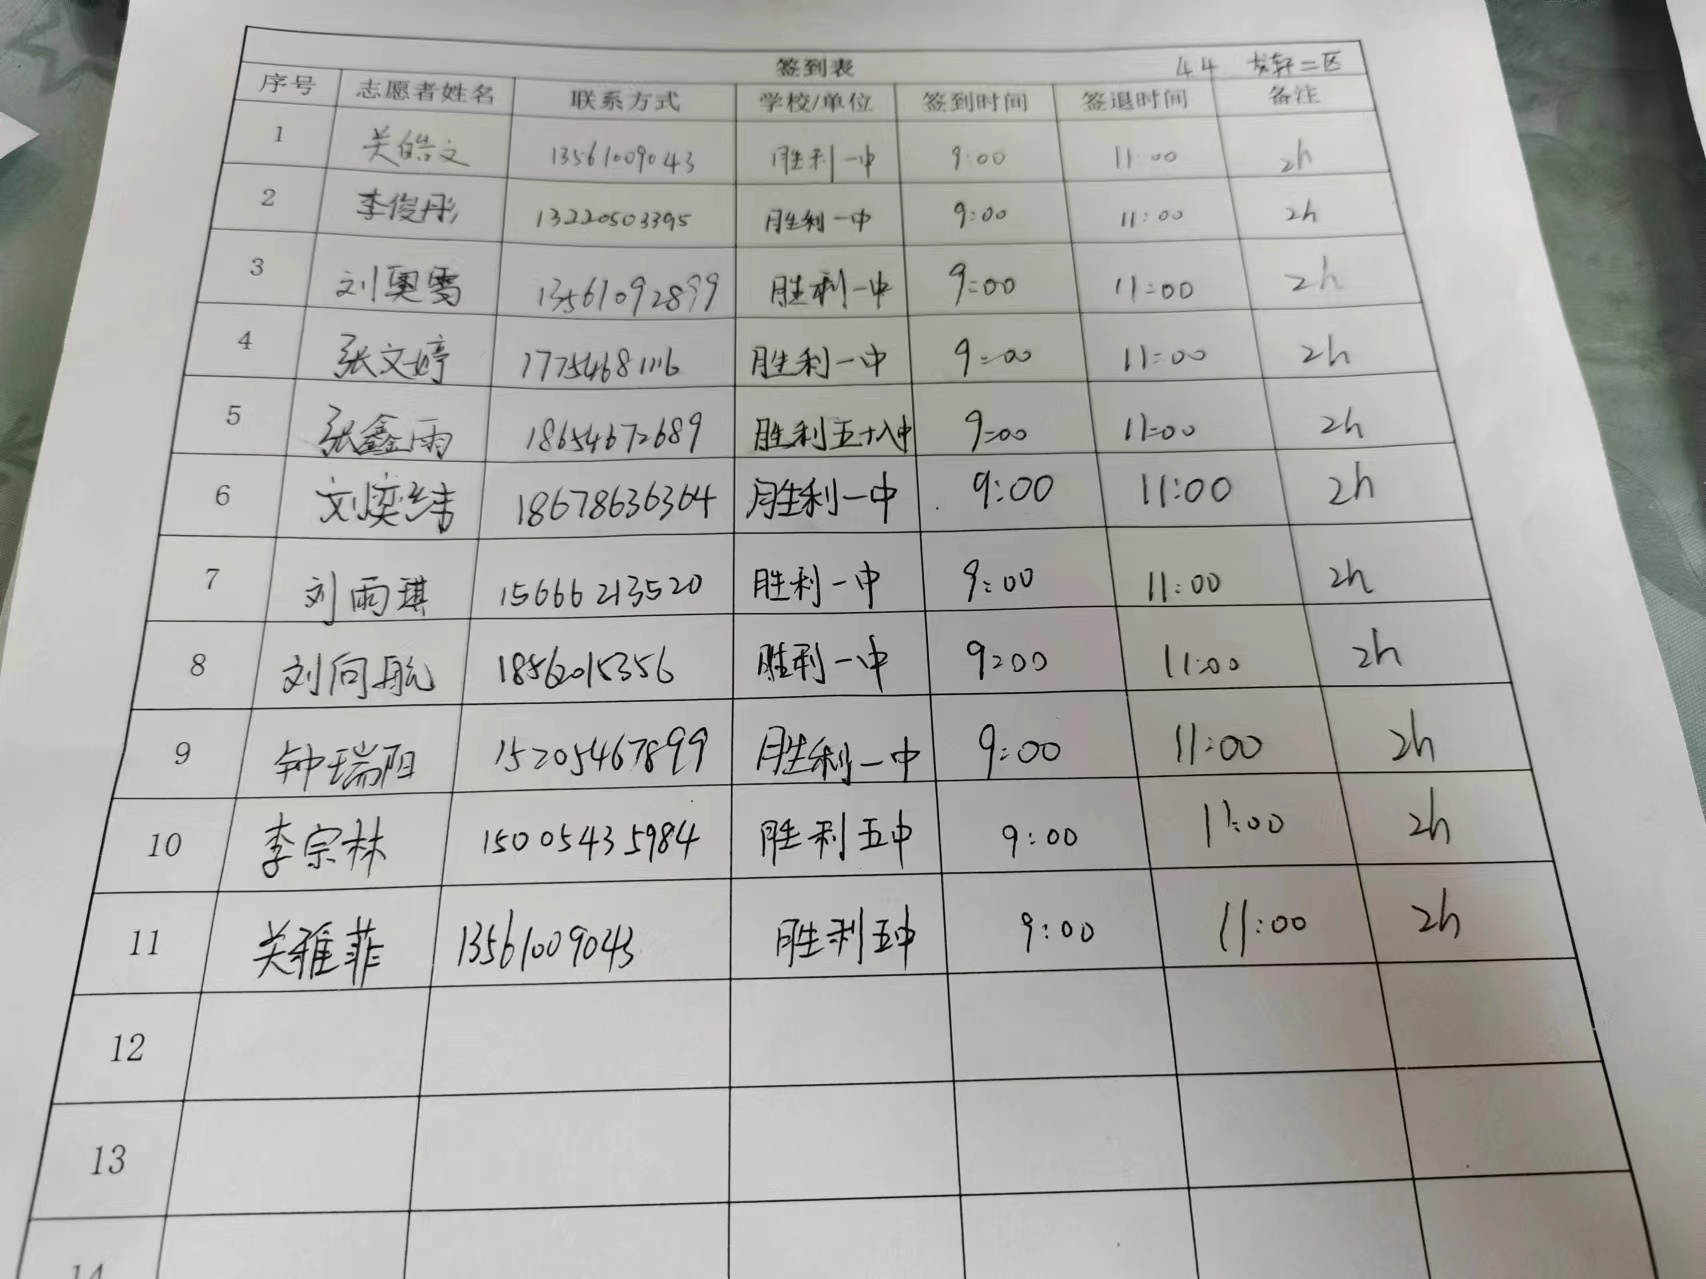 签到表 4.4 龙轩二区
序号 志愿者姓名 联系方式 学校/单位 签到时间 签退时间 备注
1 关皓文 13561009043 胜利一中 9:00 11:00 2h
2 李俊彤 13220503395 胜利一中 9:00 11:00 2h
3 刘奥雪 13561092899 胜利一中 9:00 11:00 2h
4 张文婷 17754681116 胜利一中 9:00 11:00 2h
5 张鑫雨 18654672689 胜利五十八中 9:00 11:00 2h
6 刘奕纬 18678636364 胜利一中 9:00 11:00 2h
7 刘雨琪 15666213520 胜利一中 9:00 11:00 2h
8 刘向航 18562015356 胜利一中 9:00 11:00 2h
9 钟瑞阳 15205467899 胜利一中 9:00 11:00 2h
10 李宗林 15005435984 胜利五中 9:00 11:00 2h
11 关雅菲 13561009043 胜利五中 9:00 11:00 2h
12
13
14